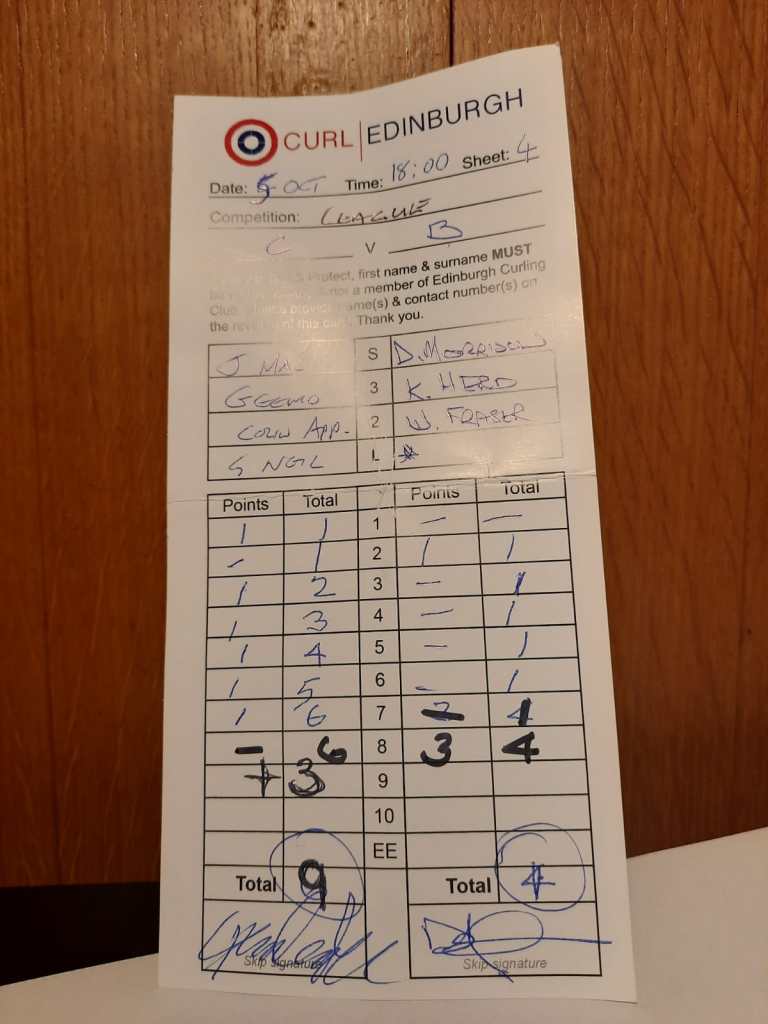 CURL | EDINBURGH
Date: 5 OCT Time: 18:00 Sheet: 4
Competition: LEAGUE
C V B
Protect, first name & surname MUST
a member of Edinburgh Curling
Club, please provide name(s) & contact number(s) on
the reverse of this card. Thank you.
J MA S D. MORRISON
3 K. HERD
COLIN APP. 2 W. FRASER
S NEIL L
Points Total Points Total
1 1 1 — —
- 1 2 1 1
1 2 3 — 1
1 3 4 — 1
1 4 5 — 1
1 5 6 - 1
1 6 7 — 1
- 6 8 3 4
+ 3 9
10
EE
Total 9 Total 4
Skip signature Skip signature